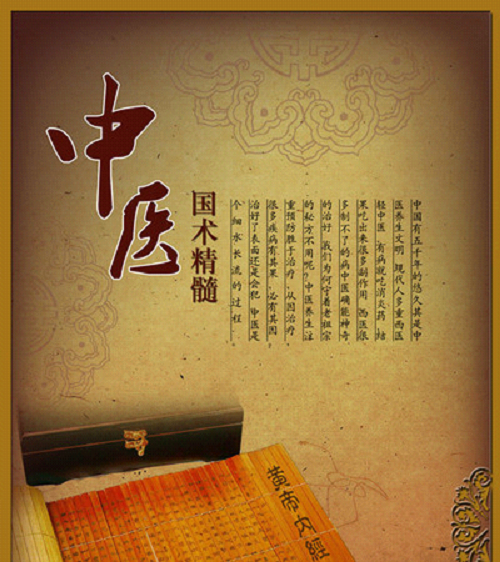 中医
国术精髓
中国有五千年的悠久其是中
医养生文明 现代人多重西医
轻中医 有病就吃消炎药 结
果吃出来很多副作用 西医很
多制不了的病中医确能神奇
的治好 我们为何守着老祖宗
的秘方不用呢?中医养生注
重预防胜于治疗 从因治疗
很多疾病有其果 必有其因
治好了表面还是会犯 中医是
个细水长流的过程
黄帝内經